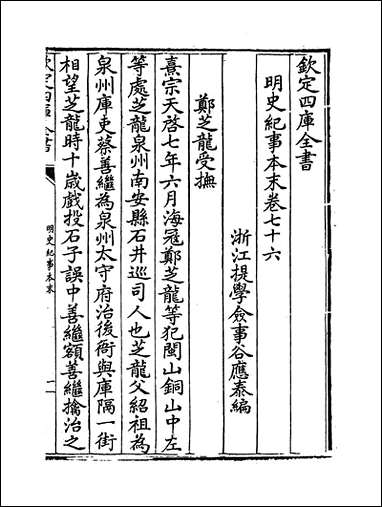 欽定四庫全書
明史紀事本末卷七十六
浙江提學僉事谷應泰編
鄭芝龍受撫
熹宗天啓七年六月海冦鄭芝龍等犯閩山銅山中左
等處芝龍泉州南安縣石井巡司人也芝龍父紹祖為
泉州庫吏蔡善繼為泉州太守府治後衙與庫隔一街
相望芝龍時十歲戲投石子誤中善繼額善繼擒治之
欽定四庫全書
明史紀事本末
一